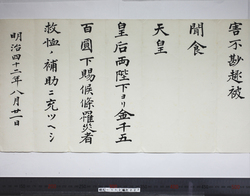 害不尠趣被
聞食
天皇
皇后両陛下ヨリ金千五
百圓下賜候條罹災者
救恤ノ補助ニ充ツヘシ
明治四十三年八月廿一日